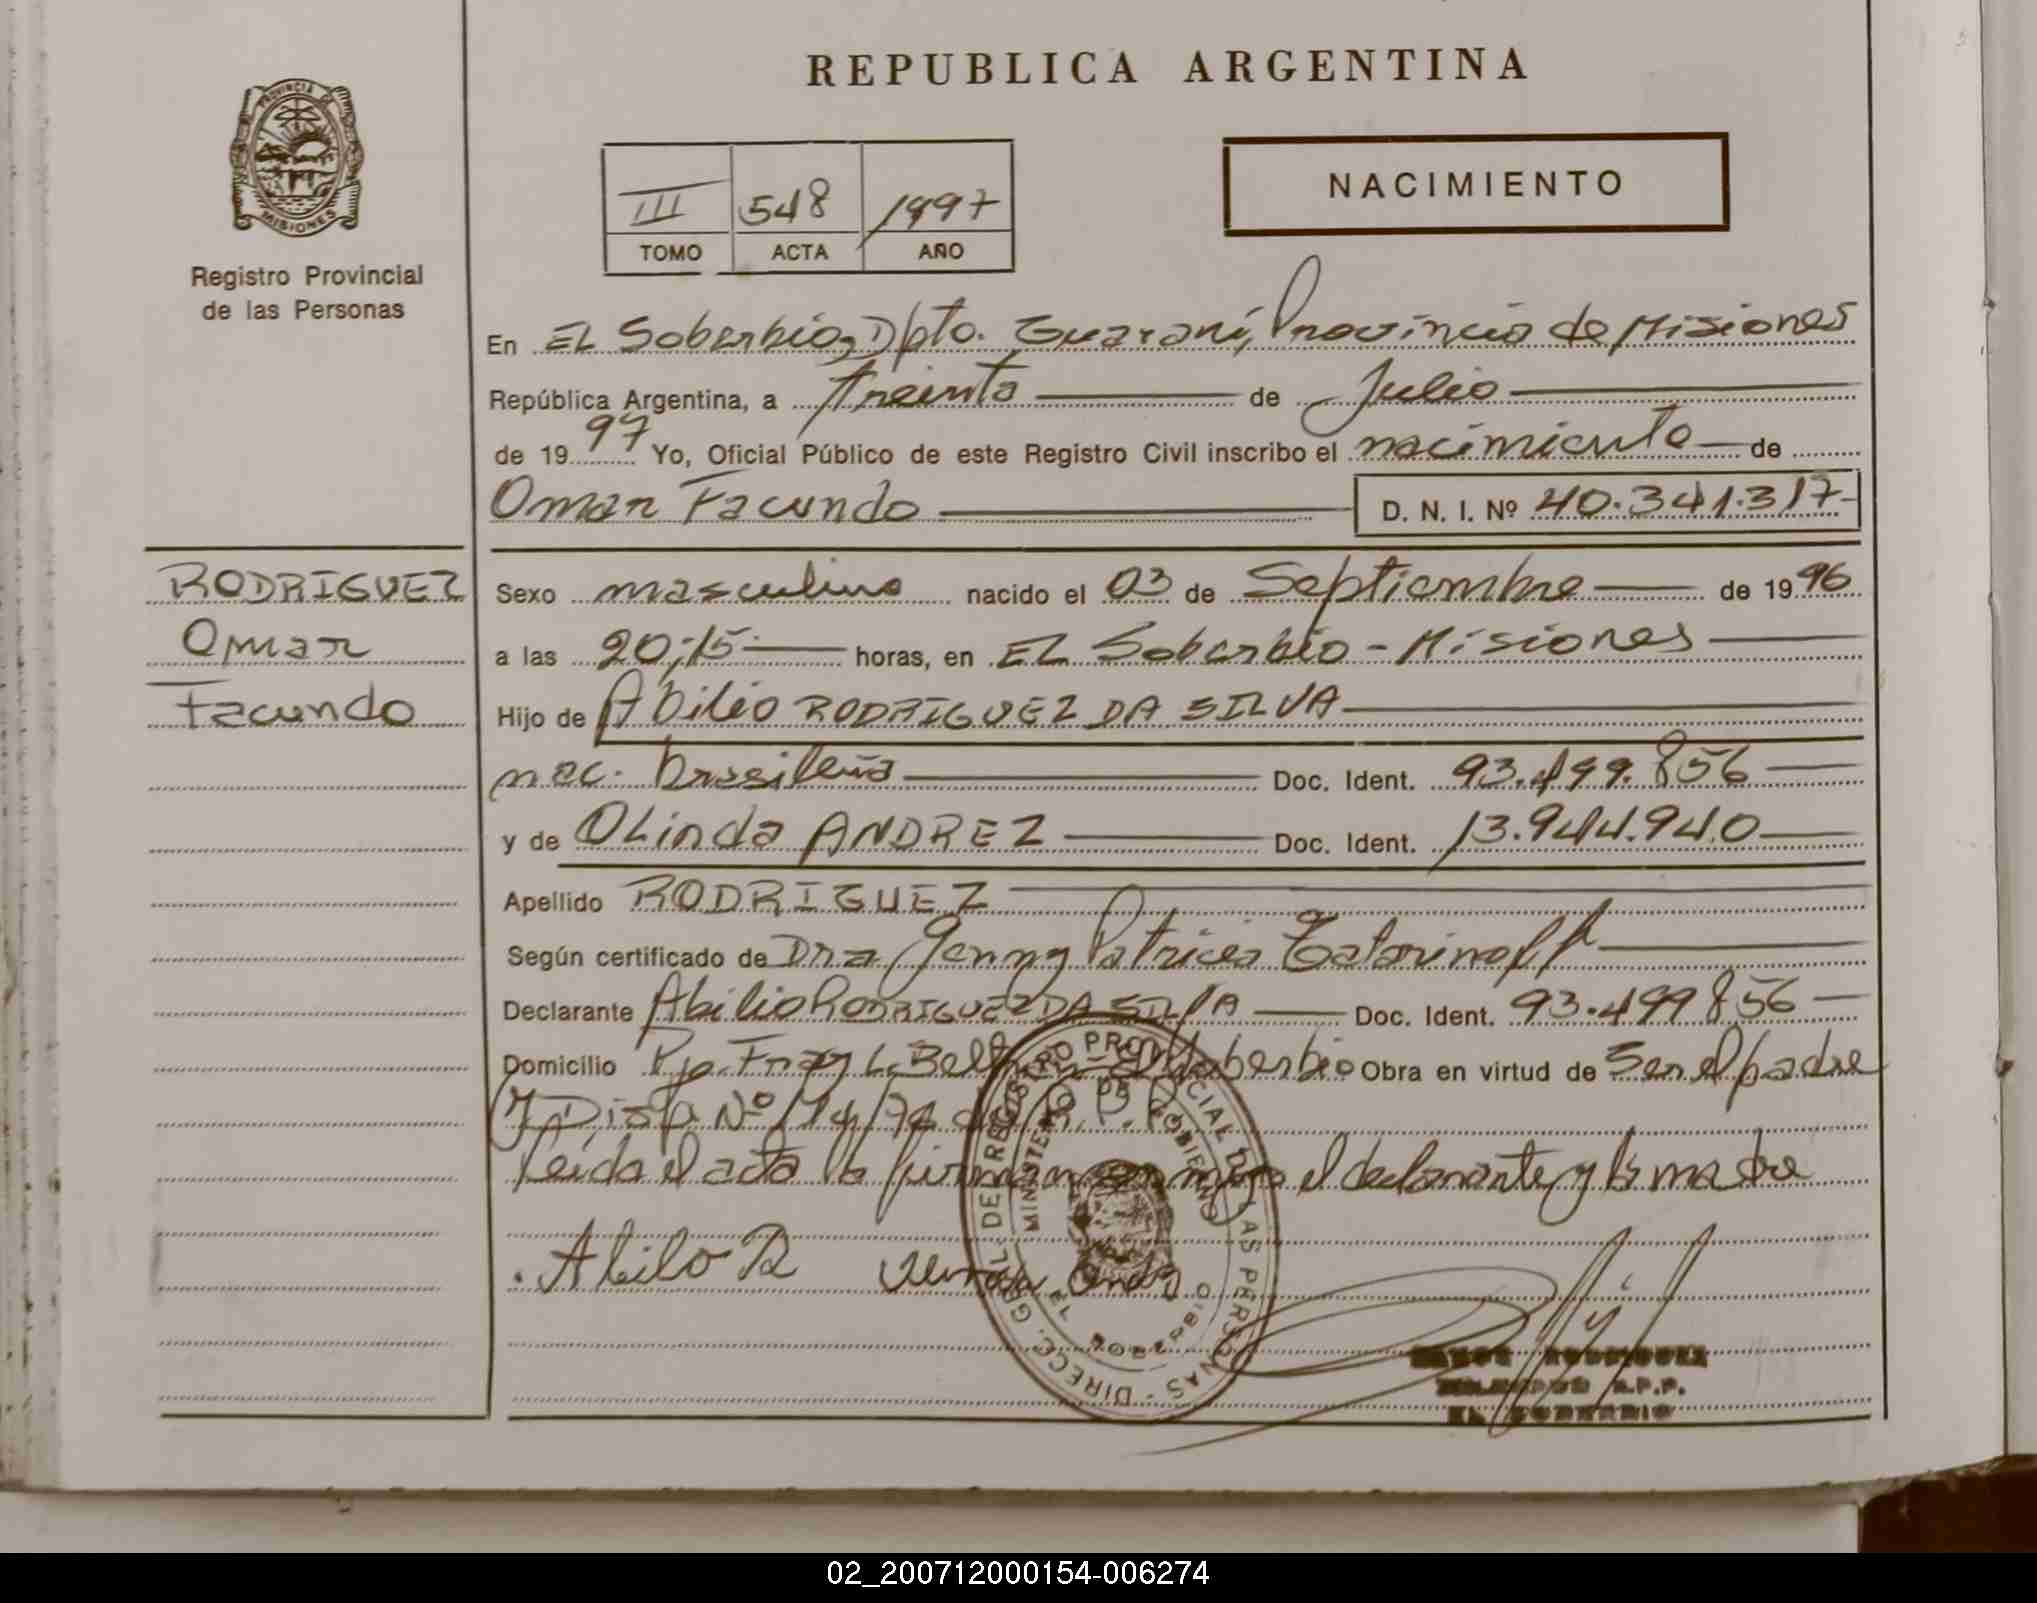 REPUBLICA ARGENTINA
PROVINCIA DE
MISIONES
Registro Provincial
de las Personas
III 548 1997
TOMO ACTA AÑO
NACIMIENTO
En EL Soberbio, Dpto. Guaraní, Provincia de Misiones
República Argentina, a treinta de Julio
de 1997 Yo, Oficial Público de este Registro Civil inscribo el nacimiento de
Omar Facundo D. N. I. Nº 40.341.317
RODRIGUEZ
Omar
Facundo
Sexo masculino nacido el 03 de Septiembre de 1996
a las 20;15 horas, en EL Soberbio - Misiones
Hijo de Abilio RODRIGUEZ DA SILVA
nac. brasileña Doc. Ident. 93.499.856
y de OLinda ANDREZ Doc. Ident. 13.944.940
Apellido RODRIGUEZ
Según certificado de Dra Jenny Patricia Tatarinoff
Declarante Abilio RODRIGUEZ DA SILVA Doc. Ident. 93.499856
Domicilio Pje. Fray L. - El Soberbio Obra en virtud de Ser el padre
y Disp. Nº
Leida el acta la firman el declarante y la madre
Abilo R
DIRECC. GRAL. DE REGISTRO PROVINCIAL DE LAS PERSONAS
MINISTERIO DE GOBIERNO
EL SOBERBIO
EL SOBERBIO
02_200712000154-006274